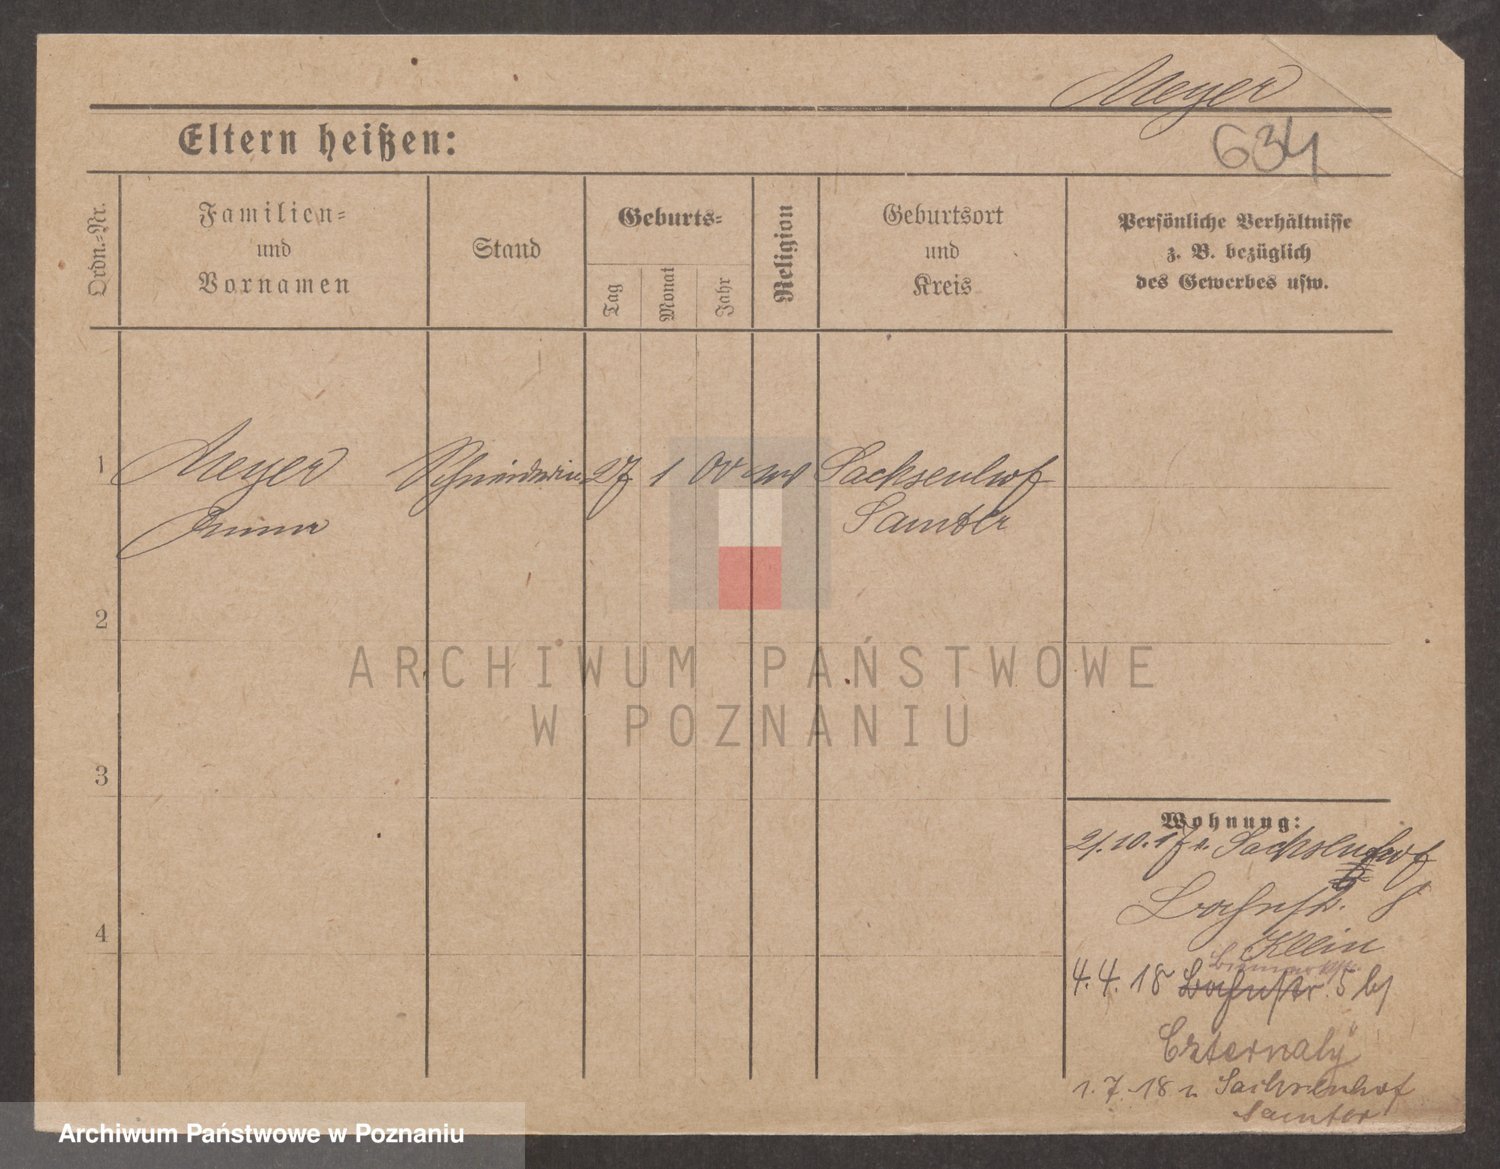 Meyer
634
Eltern heißen:
Ordn.-Nr.
Familien-
und
Vornamen
Stand
Geburts-
Tag
Monat
Jahr
Religion
Geburtsort
und
Kreis
Persönliche Verhältnisse
z. B. bezüglich
des Gewerbes usw.
1
Meyer
Schneiderin
27
1
00
Sachsenhof
Samter
2
ARCHIWUM PAŃSTWOWE
W POZNANIU
3
Wohnung:
21.10.17 Sachsenhof
Bahnstr. 8
Klein
4
4.4.18 Bahnstr. 5 bj
1.7.18 Sachsenhof
Samter
Archiwum Państwowe w Poznaniu